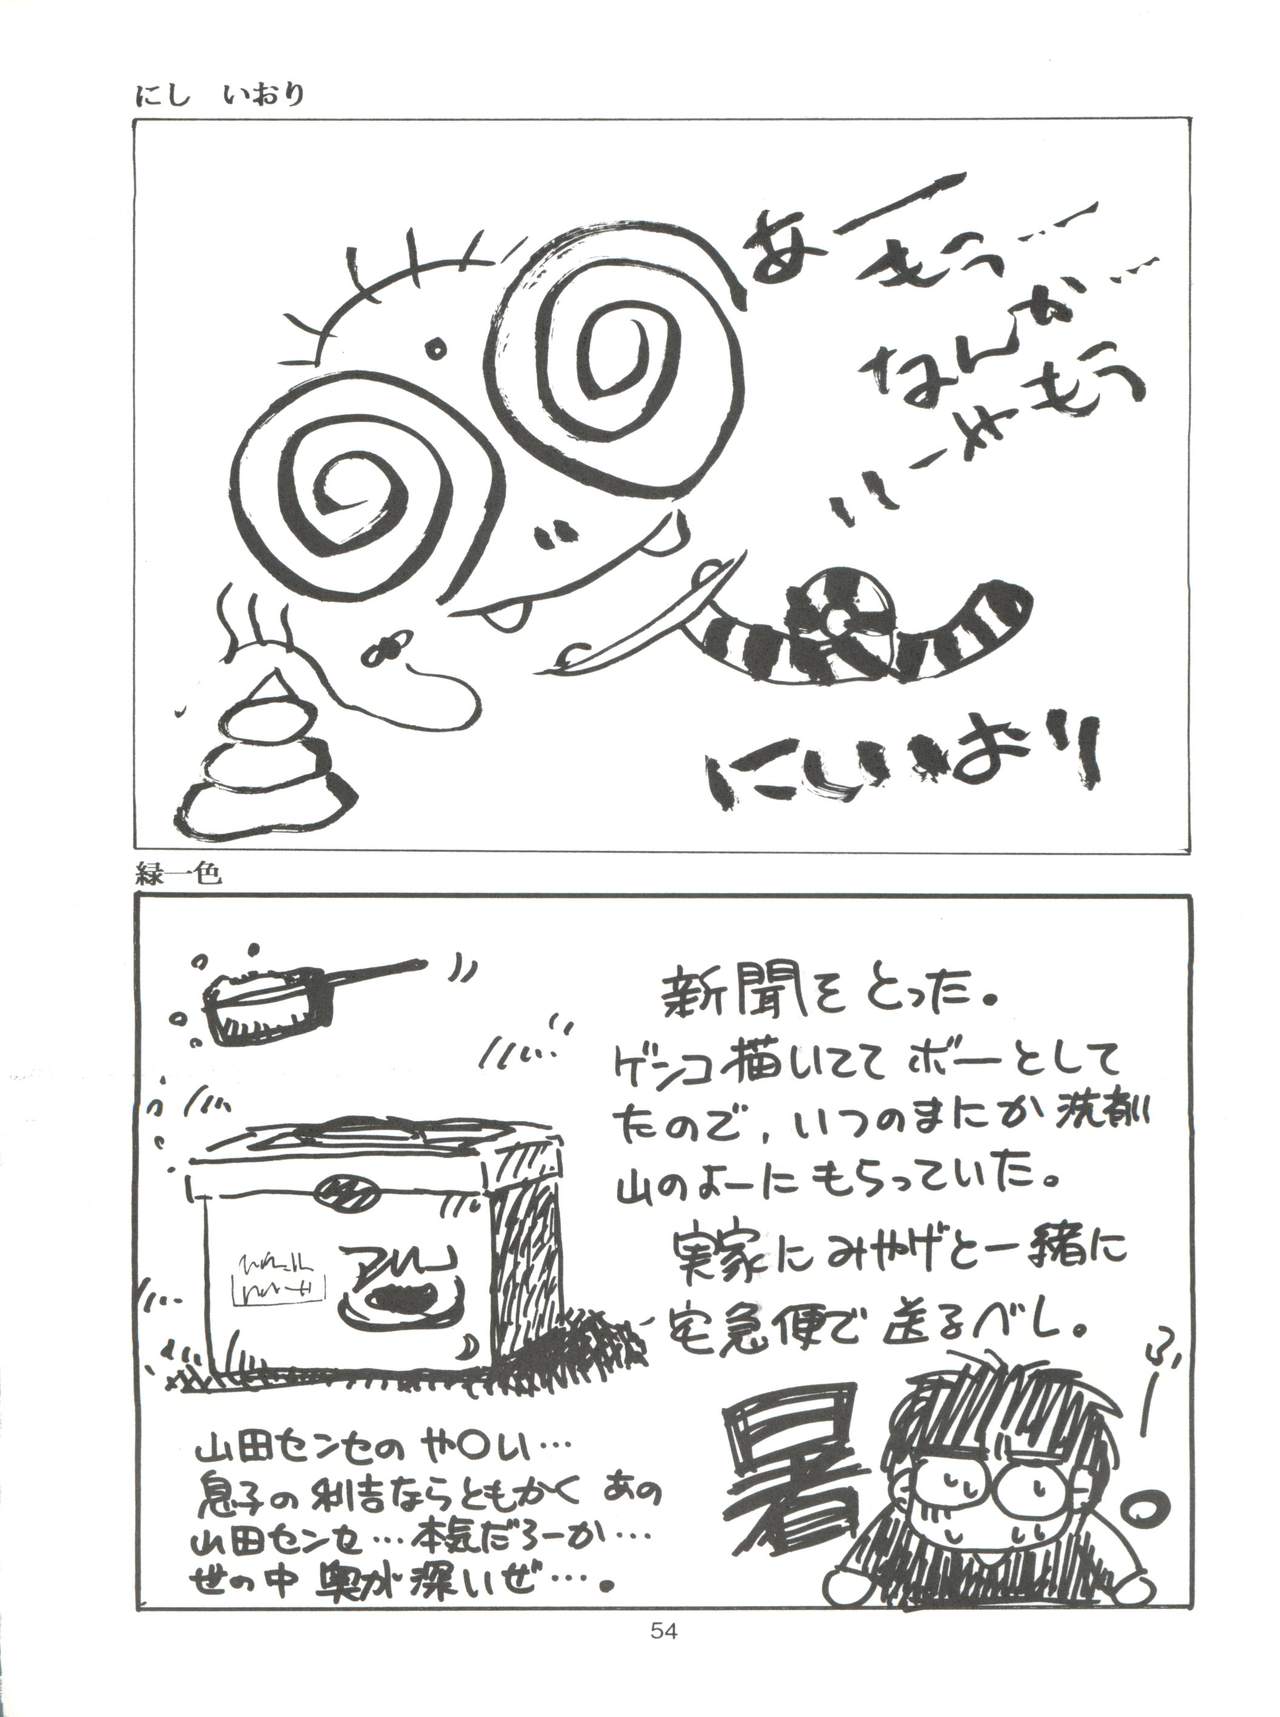 にし　いおり
あー
もう…
なんか…
もう
にしいおり
緑一色
新聞をとった。
ゲンコ描いてて ボーとして
たので、いつのまにか洗剤
山のよーにもらっていた。
実家にみやげと一緒に
宅急便で送るべし。
ふぅ
暑
山田センセのや〇い…
息子の利吉ならともかく あの
山田センセ…本気だろーか…
世の中 奥が深いぜ…。
54